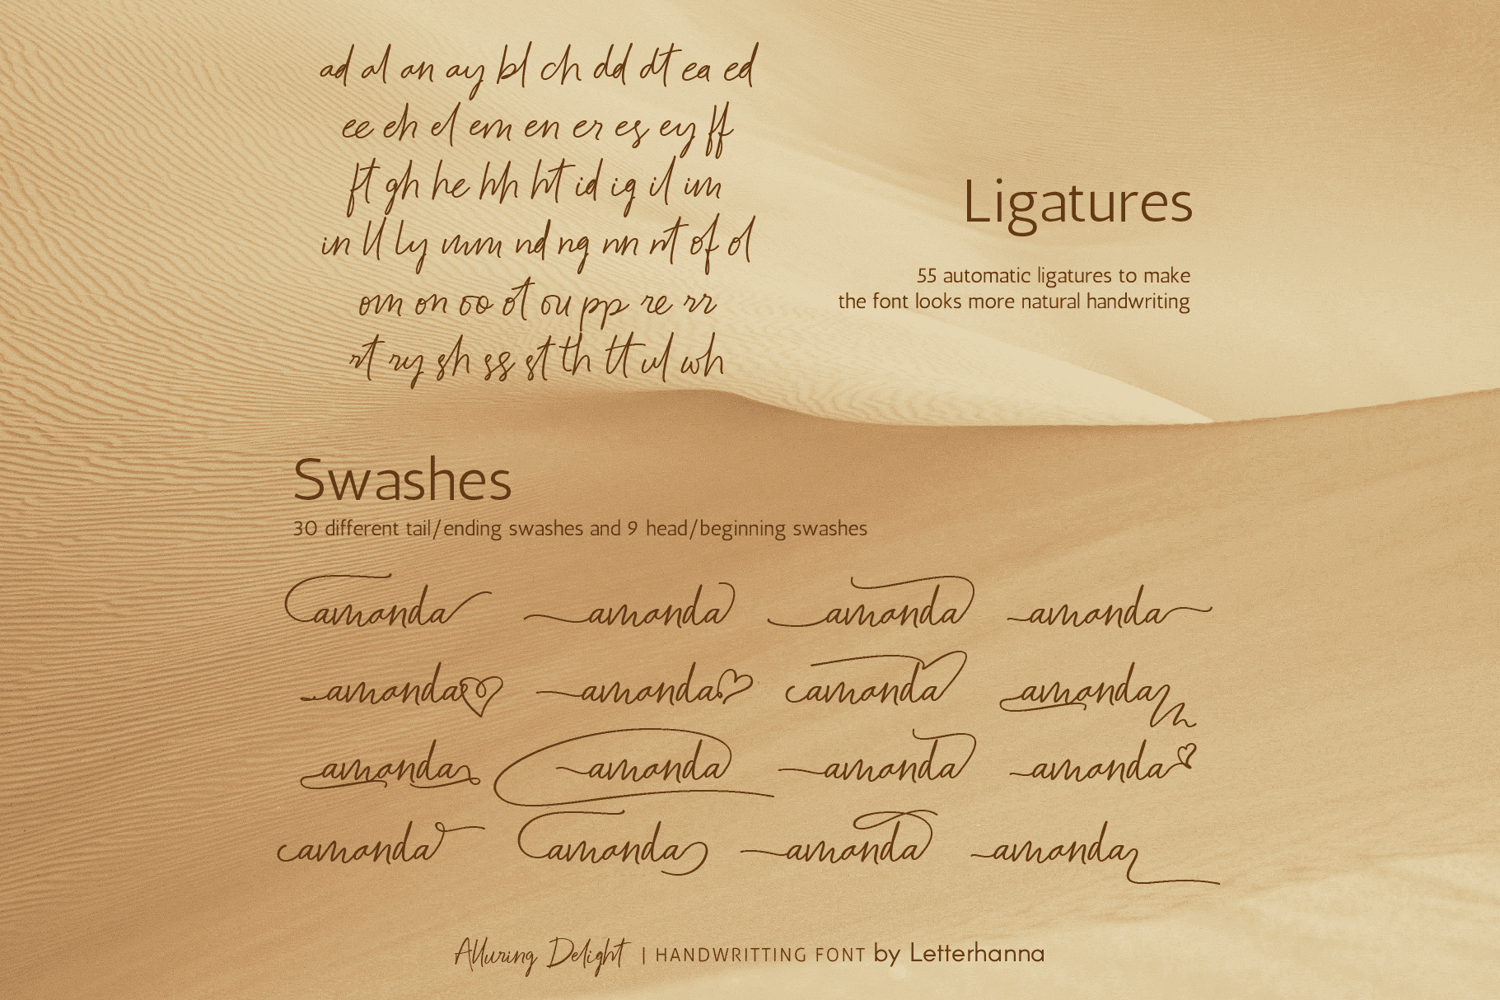 ad al an ay bl ch dd dt ea ed
ee eh el em en er es ey ff
ft gh he hh ht id ig il im
in ll ly mm nd ng nn nt of ol
om on oo ot ou pp re rr
rt ry sh ss st th tt ul wh
Ligatures
55 automatic ligatures to make
the font looks more natural handwriting
Swashes
30 different tail/ending swashes and 9 head/beginning swashes
amanda amanda amanda amanda
amanda amanda amanda amanda
amanda amanda amanda amanda
amanda amanda amanda amanda
Alluring Delight | HANDWRITTING FONT by Letterhanna